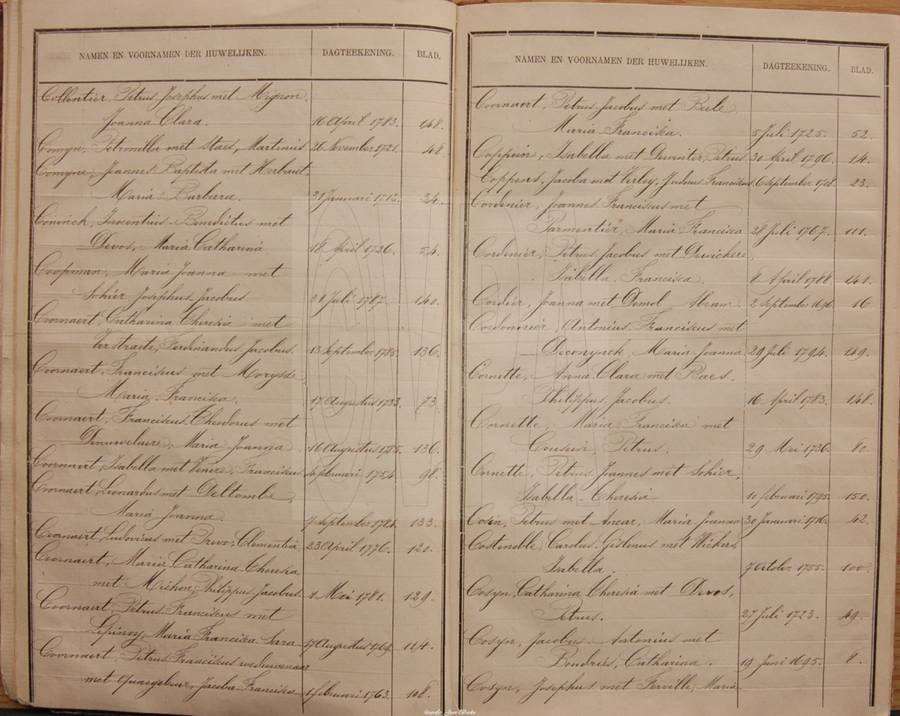 NAMEN EN VOORNAMEN DER HUWELIJKEN. DAGTEEKENING. BLAD.
Petrus Josephus met
Joanna Clara. 16 April 1783. 148.
Petronilla met Martinus 26 November 1721. 48.
Joannes Baptista met
Maria Barbara. Januari 1712. 24.
Coninck, Innocentius Benedictus met
Devos, Maria Catharina 18 April 1736. 54.
Coopman, Maria Joanna met
Sohier Josephus Jacobus. 28 Juli 1787. 140.
Coornaert, Catharina Theresia met
Verstraete, Ferdinandus Jacobus. 13 September 1785. 136.
Coornaert, Franciscus met
Maria Francisca. 17 Augustus 1733. 73.
Coornaert, Franciscus Theodorus met
Maria Joanna 16 Augustus 1785. 136.
Coornaert, Isabella met Franciscus Februari 1754. 98.
Coornaert, Leonardus met Deltombe,
Maria Joanna 7 September 1784. 133.
Coornaert Ludovicus met Clementia 23 April 1776. 120.
Coornaert, Maria Catharina Theresia
met Philippus Jacobus. 1 Mei 1781. 129.
Coornaert, Petrus Franciscus met
Maria Francisca 17 Augustus 1769. 114.
Coornaert, Petrus Franciscus weduwenaar
met Quaegebeur, Jacoba Francisca 1 Februari 1763. 108.
NAMEN EN VOORNAMEN DER HUWELIJKEN. DAGTEEKENING. BLAD.
Coornaert, Petrus Jacobus met
Maria Francisca. 5 Juli 1725. 52.
Isabella met Petrus 30 April 1790. 14.
Coppens, Jacoba met Franciscus 6 September 23.
Cordenier, Joannes Franciscus met
Parmentier, Maria Francisca 28 Juli 1767. 111.
Cordenier, Petrus Jacobus met
Isabella Francisca. 8 April 1788. 141.
Cordier, Joanna met Demol, 2 September 1696. 16
Cordonnier, Antonius Franciscus met
Deconynck, Maria Joanna. 29 Juli 1794. 149.
Cornette, Anna Clara met Baes,
Philippus Jacobus. 16 April 1783. 148.
Cornette, Maria Francisca met
Petrus. 29 Mei 1736. 80.
Cornette, Petrus Joannes met Sohier,
Isabella Theresia 10 Februari 1795. 150.
Petrus met Maria Joanna 30 Januari 1716. 42.
Costenoble, Carolus Gislenus met
Isabella. 7 October 1755. 100.
Cosyn, Catharina Theresia met Devos,
Petrus. 27 Juli 1723. 49.
Cosyn, Jacobus Antonius met
Boudries, Catharina. 19 Juni 1695. 8.
Cosyn, Josephus met Ferville, Maria